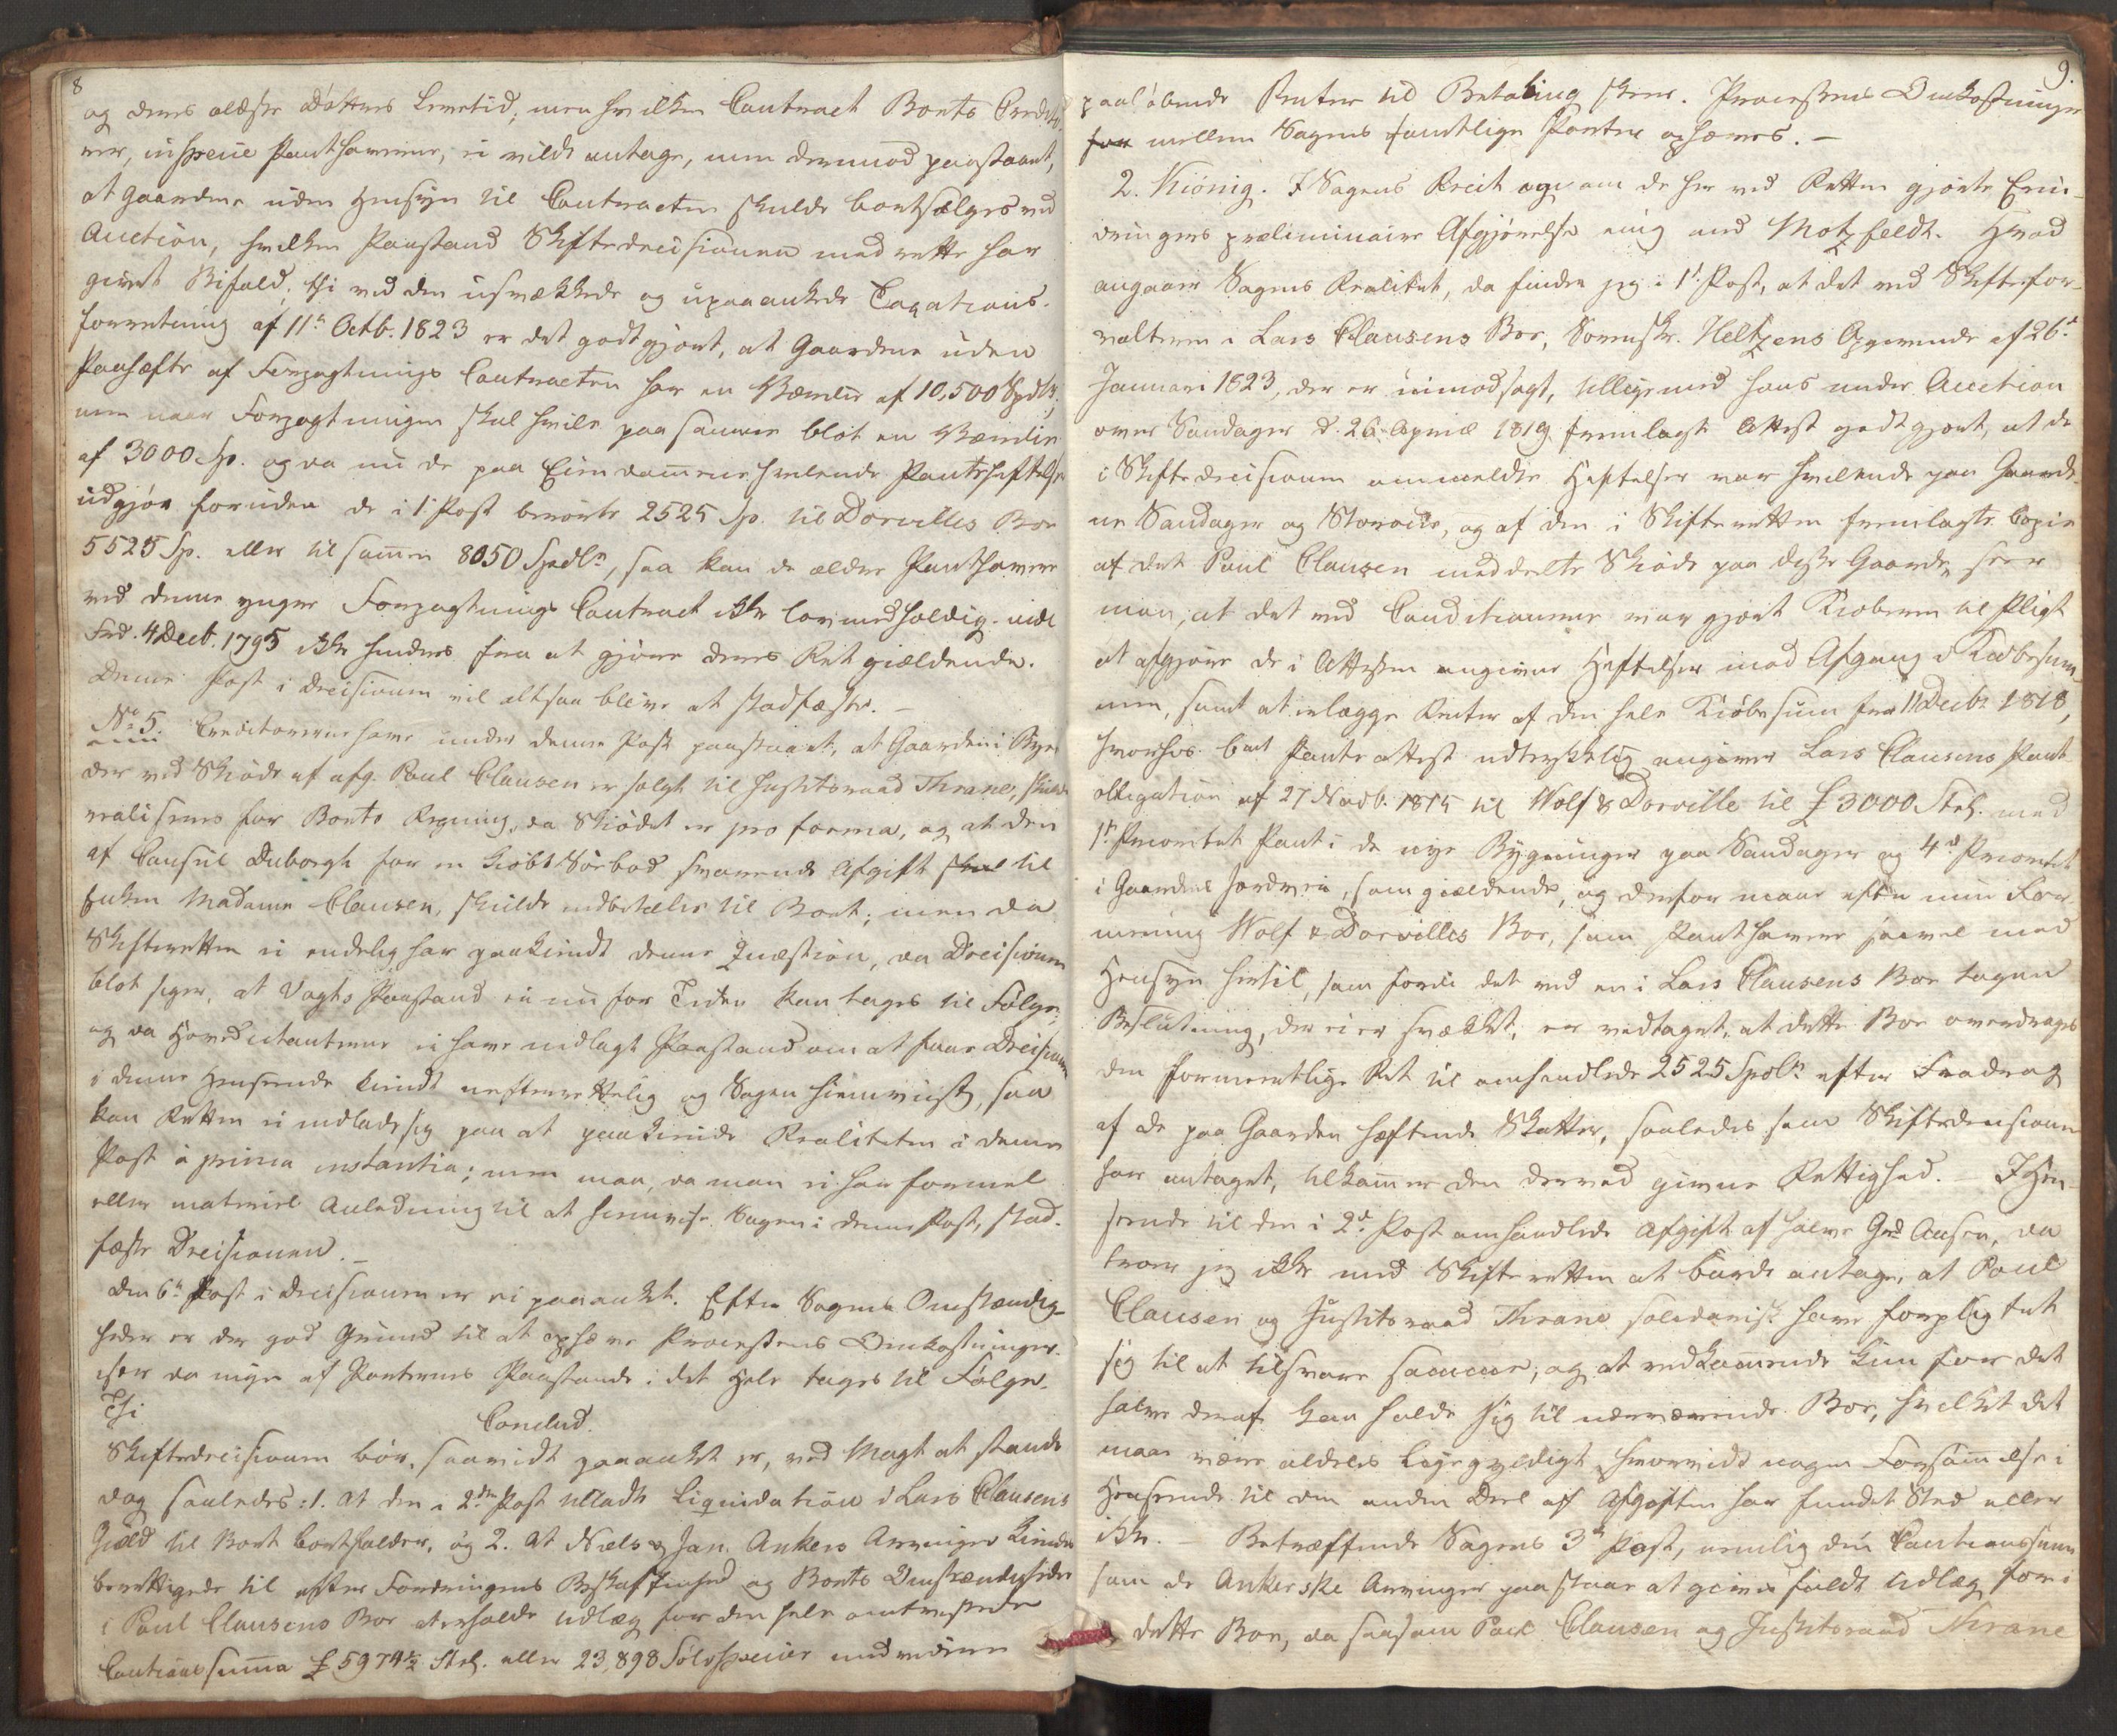 8
og deres ældste Datters Levetid; men hvilken Contract Boets Credito-
rer, in specie Panthaverne, ei vilde antage, men derimod paastaaet,
at Gaardene uden Hensyn til Contracten skulde bortsælges ved
Auction, hvilken Paastand Skiftedecisionen med rette har
givet Bifald, thi ved den usvækkede og upaaankede Taxations-
forretning af 11te Octb. 1823 er det godtgjort, at Gaardene uden
Paahæfte af Forpagtnings Contracten har en Værdie af 10,500 Spdlr,
men naar Forpagtningen skal hvile paa samme blot en Værdie
af 3000 Sp. og da nu de paa Eiendommene hvilende Pantehæftelser
udgjør foruden de i 1 Post berørte 2525 Sp. til Dorvilles Boe
5525 Sp. eller tilsammen 8050 Spdlr, saa kan de ældre Panthavere
ved denne yngre Forpagtnings Contract ikke lovmedholdig vide
Frd. 4 Decb. 1795 ikke hindres fra at gjøre deres Ret gjældende.
Denne Post i Decisionen vil altsaa blive at stadfæste. –
No 5. Creditorerne have under denne Post paastaaet, at Gaarden i Byen
der ved Skiøde af afg. Poul Clausen er solgt til Justitsraad Thrane, skulde
realiseres for Boets Regning, da Skiødet er pro forma, og at den
af Consul Duborgh for en kiøbt Søebod svarende Afgift til
Enken Madame Clausen, skulde indbetales til Boet; men da
Skifteretten ei endelig har paakiendt denne Quæstion, da Decisionen
blot siger, at Vogts Paastand ei nu for Tiden kan tages til Følge,
og da Hovedcitanterne ei have nedlagt Paastand om at faae Decisionen
i denne Henseende kiendt uefterrettelig og Sagen hiemviist, saa
kan Retten ei indlade sig paa at paakiende Realiteten i denne
Post à prima instantia; men maa, da man ei har formel
eller materiel Anledning til at hiemvise Sagen i denne Post, stad-
fæste Decisionen. –
Den 6te Post i Decisionen er ei paaanket. Efter Sagens Omstændig-
heder er der god Grund til at ophæve Processens Omkostninger
især da ingen af Parternes Paastande i det Hele tages til Følge.
Thi
Conclud.
Skiftedecisionen bør, saavidt paaanket er, ved Magt at stande
dog saaledes: 1. at den i 2den Post tilladte Liqvidation i Lars Clausens
Gield til Boet bortfalder, og 2. at Niels & Jan. Ankers Arvinger kiendes
berettigede til efter Fordringens Beskaffenhed og Boets Omstændigheder
i Poul Clausens Boe at erholde Udlæg for den hele omtvistede
Cautions summa £ 5974½ Strl. eller 23,898 Sølvspecier med videre
9.
paaløbende Renter til Betaling skeer. Processens Omkostninger
mellem Sagens samtlige Parter ophæves. –
2. Kiönig. I Sagens Recit og om de her ved Retten gjorte Erin-
dringers præliminaire Afgjørelse enig med Motzfeldt. Hvad
angaaer Sagens Realitet, da finder jeg i 1' Post, at det ved Skiftefor-
valteren i Lars Clausens Boe, Sorenskr. Heltzens Opgivende af 26d
Januari 1823, der er uimodsagt, tilligemed hans under Auction
over Sandager d. 26 April 1819 fremlagte Attest godtgjort, at de
i Skiftedecisionen ommeldte Heftelser var hvilende paa Gaarde-
ne Sandager og Storøen, og af den i Skifteretten fremlagte Copie
af det Poul Clausen meddeelte Skiøde paa disse Gaarde, seer
man, at det ved Conditionerne var gjort Kiøberen til Pligt
at afgjøre de i Attesten angivne Heftelser mod Afgang i Kiøbesum-
men, samt at erlægge Renter af den hele Kiøbesum fra 11 Decbr 1818,
hvorhos bem. Pante attest udtrykkelig angiver Lars Clausens Pant
obligation af 27 Novb. 1815 til Wolf & Dorville til £ 3000 Strl. med
1ste Prioritet Pant i de nye Bygninger paa Sandager og 4d Prioritet
i Gaardens Jordveie, som gieldende, og derfor maae efter min For-
mening Wolf & Dorvilles Boe, som Panthavere saavel med
Hensyn hertil, som fordi det ved en i Lars Clausens Boe tagen
Beslutning, der ei er svækket, er vedtaget, at dette Boe overdrages
den formentlige Ret til omhandlede 2525 Spdlr. efter Fradrag
af de paa Gaarden hæftende Skatter, saaledes som Skiftedecisionen
har antaget, tilkommer den derved givne Rettighed. – I Hen-
seende til den i 2d Post omhandlede Afgift af halve Grd Ausen, da
troer jeg ikke med Skifteretten at burde antage, at Poul
Clausen og Justitsraad Thrane solidarisk have forpligtet
sig til at tilsvare samme, og at vedkommende kun for det
halve deraf kan holde sig til nærværende Boe, hvilket det
maae være aldeles ligegyldigt, hvorvidt nogen Forsømmelse i
Henseende til den anden Deel af Afgiften har fundet Sted eller
ikke. – Betræffende Sagens 3die Post, nemlig den Cautionssum
som de Ankerske Arvinger paastaar at gives fuldt Udlæg for i
dette Boe, da saasom Poul Clausen og Justitsraad Thrane